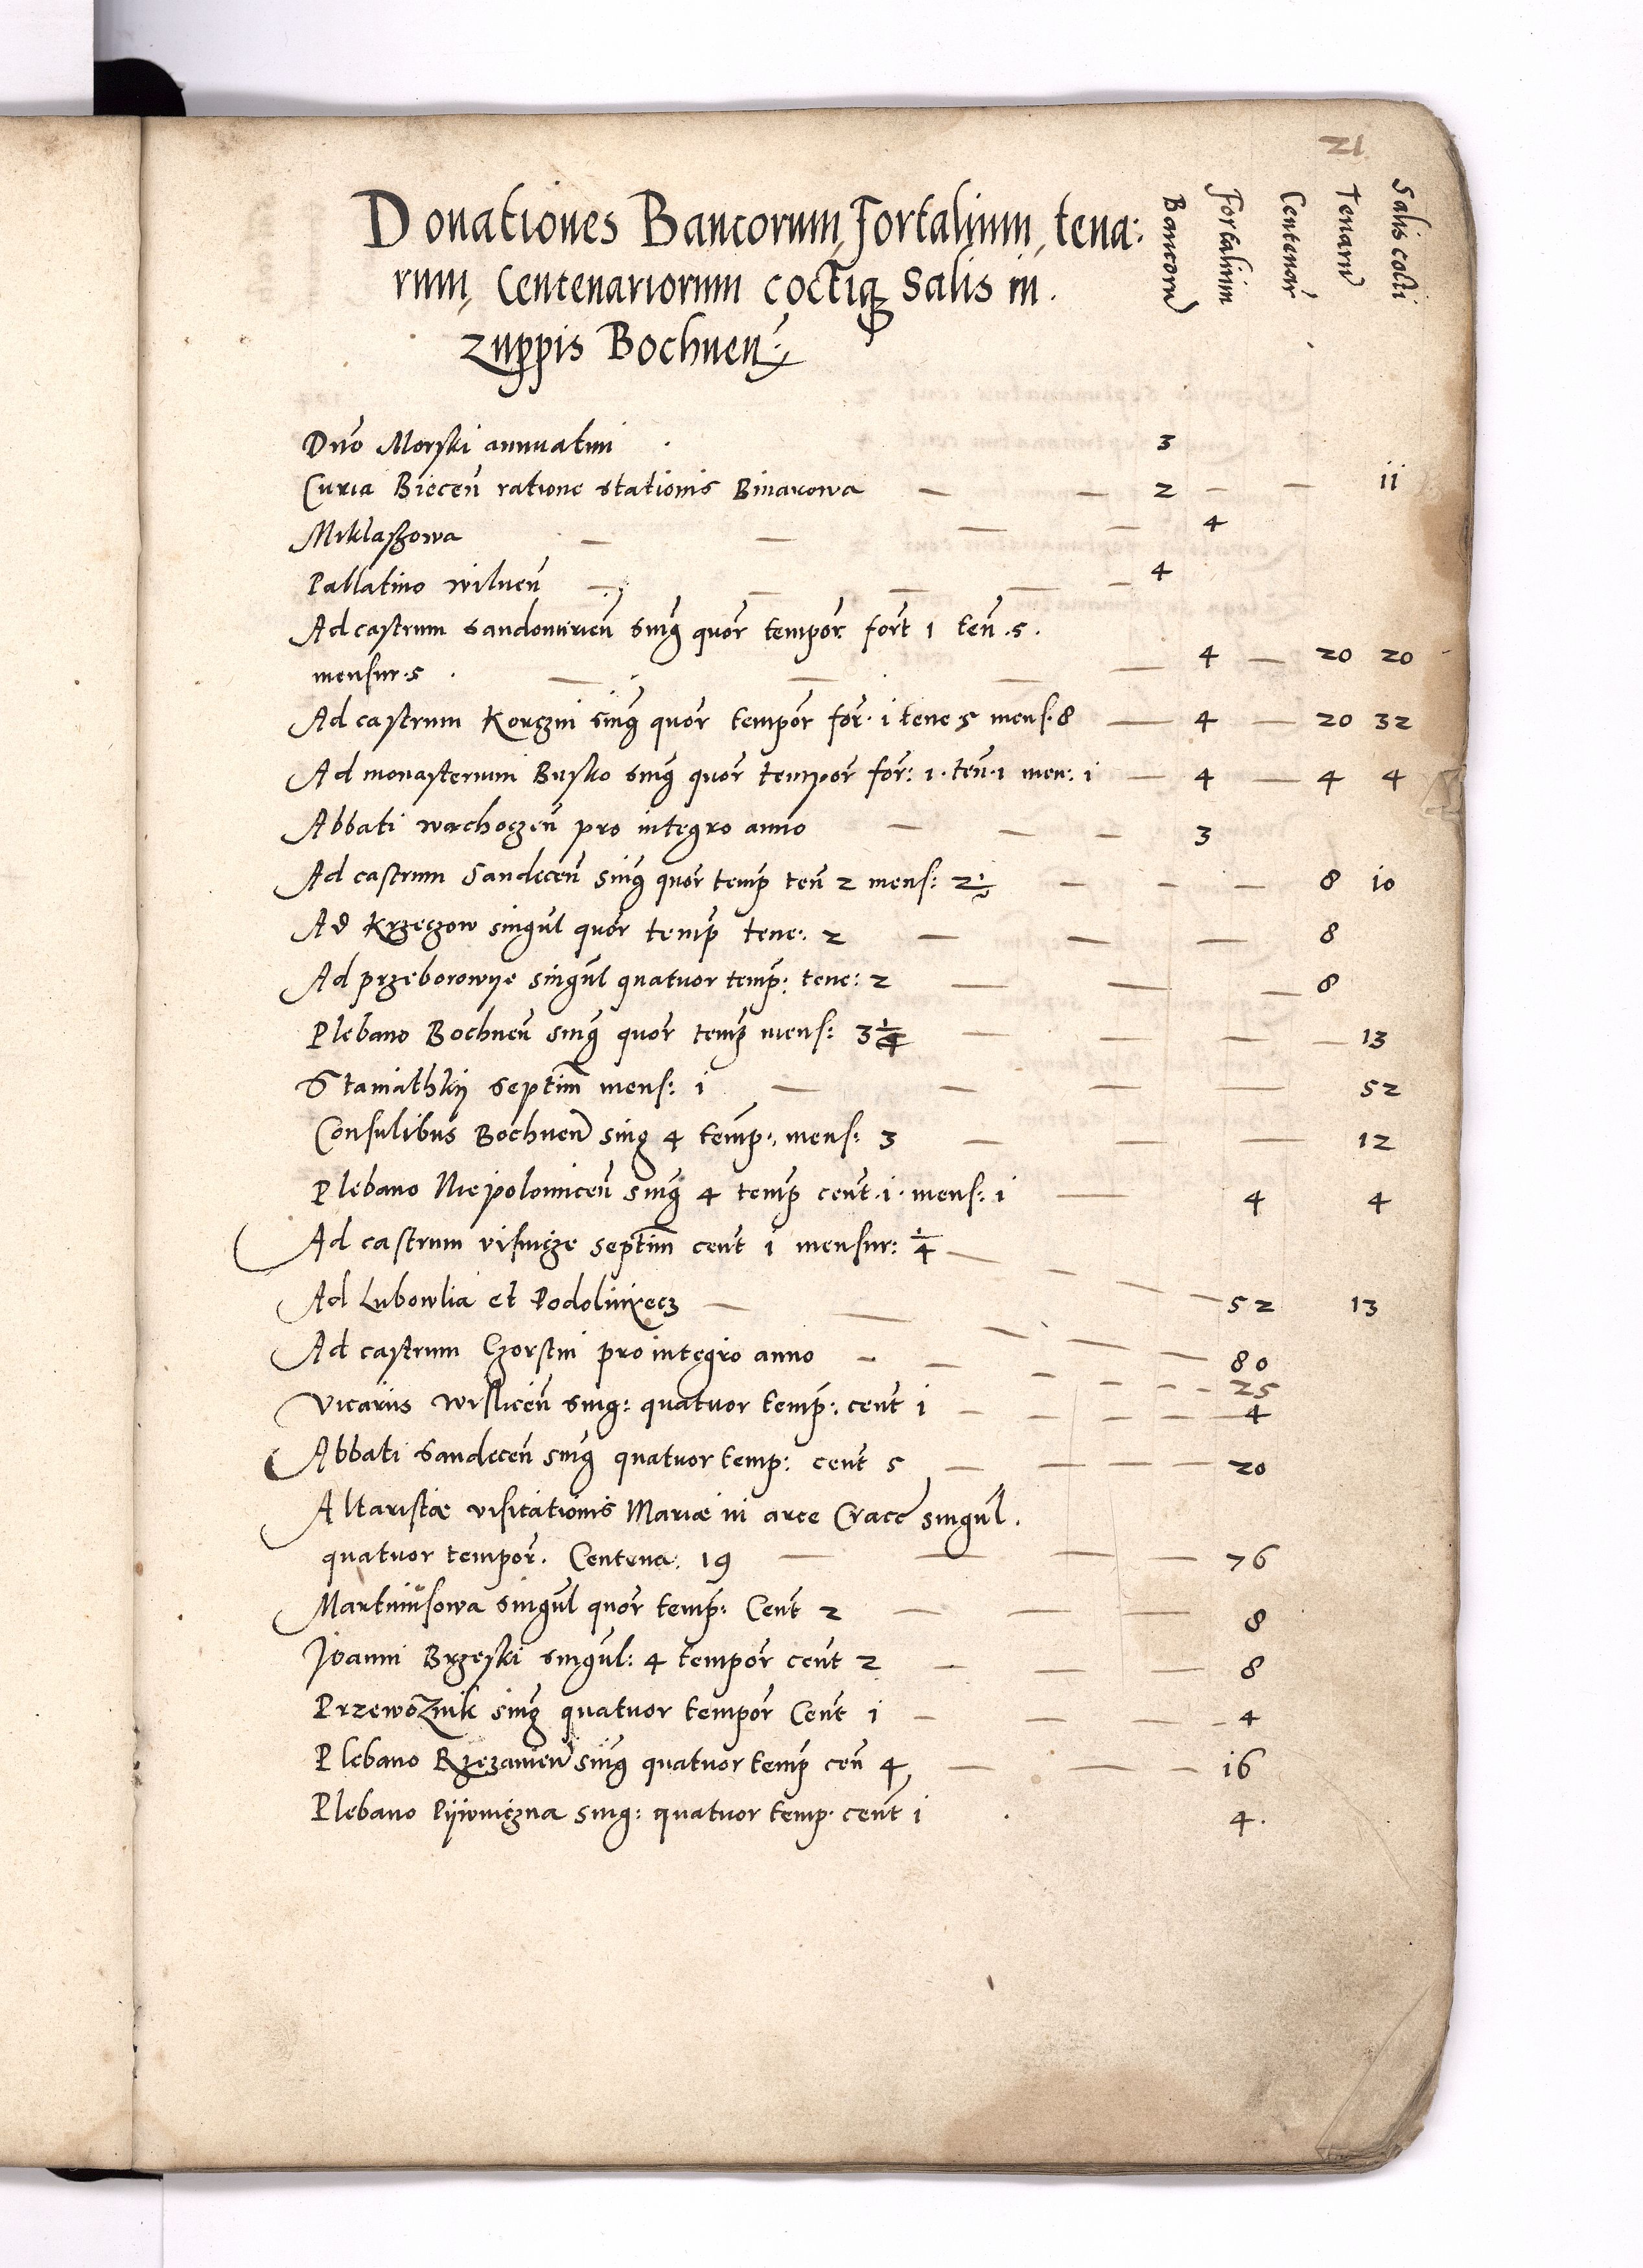 21
Bancorũ Fortalium Centenar̃ Tenarũ Salis cocti
Donationes Bancorum, Fortalium, tena:
rum, Centenariorum coctiq̃ Salis in.
zuppis Bochnen:
Dño Morski annuatim 3
Curia Biecen̄ ratione stationis Binarowa — — 2 — — ii
Miklaszowa — — — — 4
Pallatino wilnen̄ — — — — — 4
Ad castrum Sandomirien̄ sing̃ quor̃ tempor̃ fort̃ 1 ten̄ .5.
mensur.5 . — — — — 4 — 20 20
Ad castrum Korczin sing̃ quor̃ tempor̃ for̃. i tene 5 mens. 8 — 4 — 20 32
Ad monasterium Busko sing̃ quor̃ tempor̃ for̃: 1. ten̄.1 men: i — 4 — 4 4
Abbati wachoczen̄ pro integro anno — — — 3
Ad castrum Sandecen̄ sing̃ quor̃ temp̃ ten̄ 2 mens: 2½ — — — 8 10
Ad Krzeczow singul̃ quor̃ temp̃ tene: 2 — — — 8
Ad przeborowye singul̃ quatuor temp̃: tene: 2 — — — 8
Plebano Bochnen̄ sing̃ quor̃ temp̃ mens: 3¼ — — — — 13
Staniathky septim̄ mens: i — — — — 52
Consulibus Bochnen̄ sing 4 temp̃:, mens: 3 — — — 12
Plebano Niepolomicen̄ sing̃ 4 temp̃ cent̃.i. mens: i — 4 4
Ad castrum visnicze septim̄ cent̃ i mensur: ¼ — — — — 52 13
Ad Lubowlia et Podoliniecz — — — — — 80
Ad castrum Czorstin pro integro anno — — — — — — 25
Vicariis wislicen̄ sing: quatuor temp̃: cent̃ i — — — — — 4
Abbati Sandecen̄ sing̃ quatuor temp: cent̃ 5 — — — — 20
Altaristæ visitationis Mariæ in arce Crac̃ singul̃.
quatuor tempor̃. Centena: 19 — — — — 76
Martinusowa singul̃ quor̃ temp̃: Cent̃ 2 — — — 8
Joanni Brzeski singul: 4 tempor̃ cent̃ 2 — — — 8
Przewoznik sing̃ quatuor tempor̃ Cent̃ i — — — — 4
Plebano Rzezanien̄ sing̃ quatuor temp̃ cen̄ 4 — — — 16
Plebano Pijwniczna sing: quatuor temp. cent̃ i . 4.